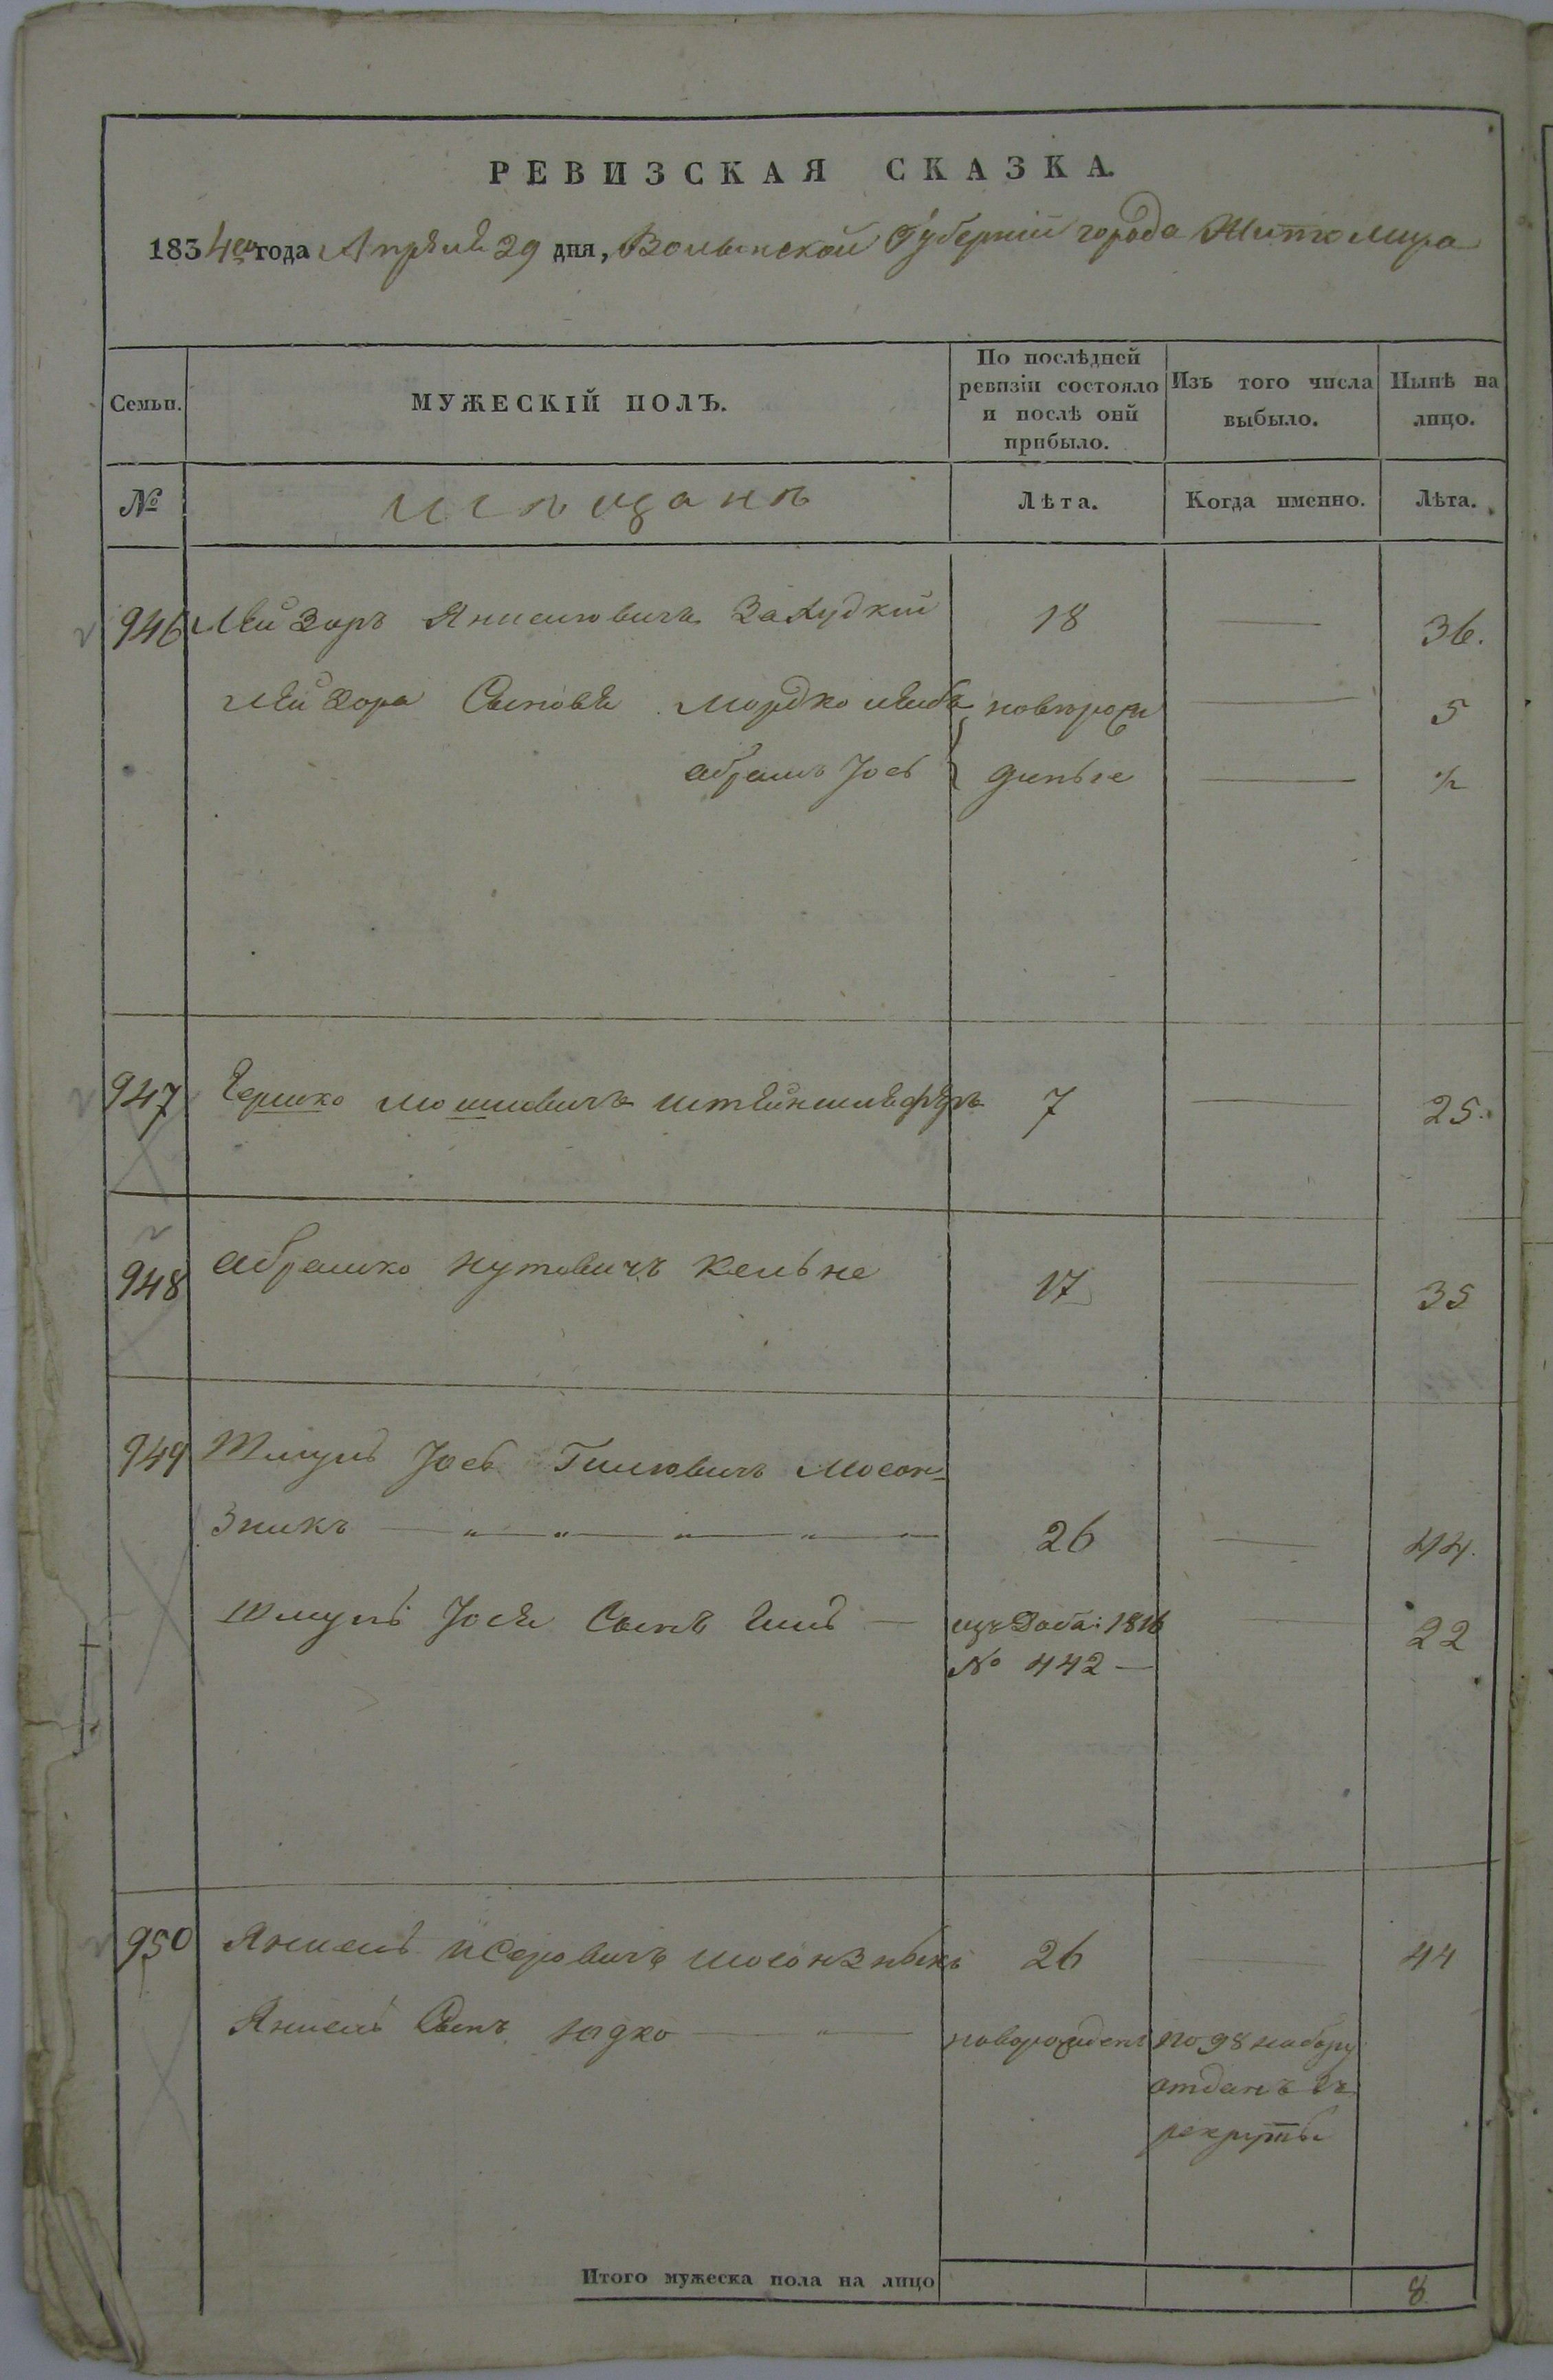 РЕВИЗСКАЯ СКАЗКА.
1834го года Апреля 29 дня, Волынской Губерніи города Житомира
Семьи.
МУЖЕСКІЙ ПОЛЪ.
По послѣдней ревизіи состояло и послѣ оній прибыло.
Изъ того числа выбыло.
Нынѣ на лицо.
№
мещане
Лѣта.
Когда именно.
Лѣта.
946 Лейзоръ Янкелевичъ 18 — 36.
Лейзора Сыновя Мордко Лейбъ новорож 5
Абрамъ Іось денные — ½
947 Гершко Мошковичъ Штейншлейферъ 7 — 25.
948 Абрамко Нутовичъ Кельне 17 — 35
949 Шмуль Іось Гилловичъ Мосон-
зникъ — 26 — 44.
Шмуль Іося Сынъ — изъ доба: 1816 — 22
№ 442 —
950 Янкель Мосонзникъ 26 — 44
Янкеля Сынъ Юдко — новорожденъ по 98 набору
отданъ въ
рекруты
Итого мужеска пола на лицо 8